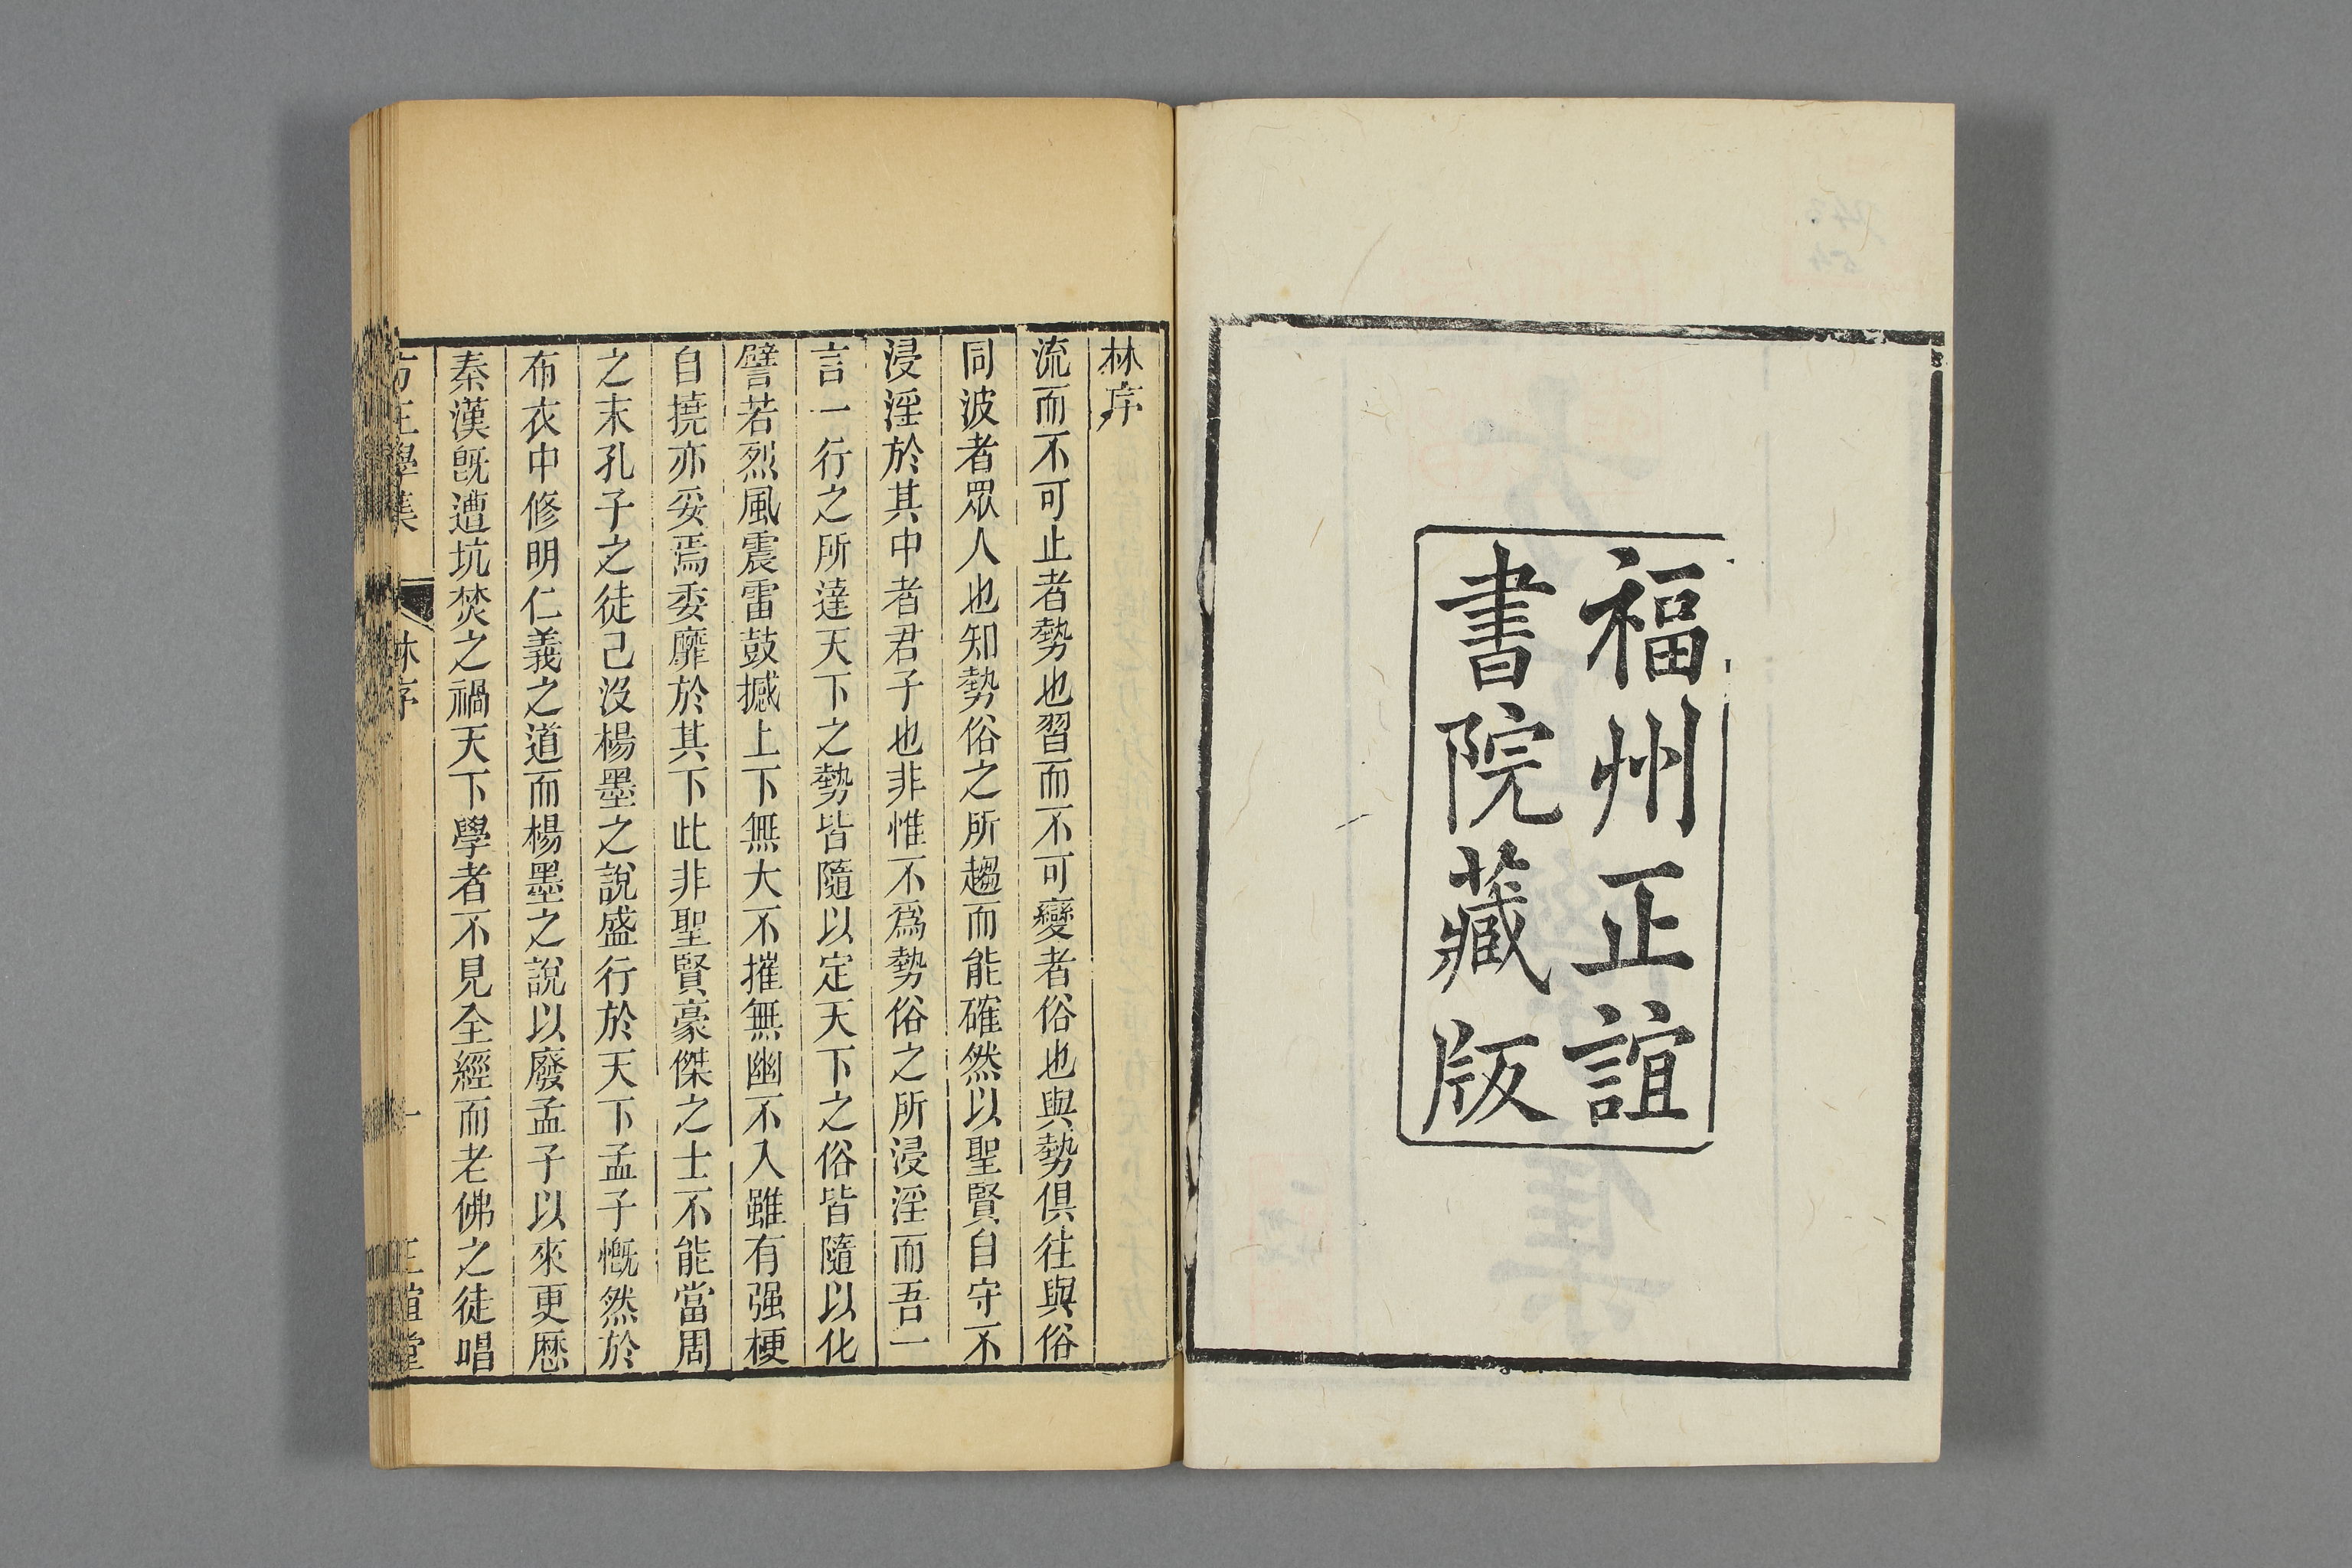 福州正誼
書院藏版
林序
流而不可止者勢也習而不可變者俗也與勢俱往與俗
同波者眾人也知勢俗之所趨而能確然以聖賢自守不
浸淫於其中者君子也非惟不為勢俗之所浸淫而吾一
言一行之所達天下之勢皆隨以定天下之俗皆隨以化
譬若烈風震雷鼓撼上下無大不摧無幽不入雖有强梗
自撓亦妥焉委靡於其下此非聖賢豪傑之士不能當周
之末孔子之徒己沒楊墨之說盛行於天下孟子慨然於
布衣中修明仁義之道而楊墨之說以廢孟子以來更歷
秦漢旣遭坑焚之禍天下學者不見全經而老佛之徒唱
正學集
林序
一
正誼堂